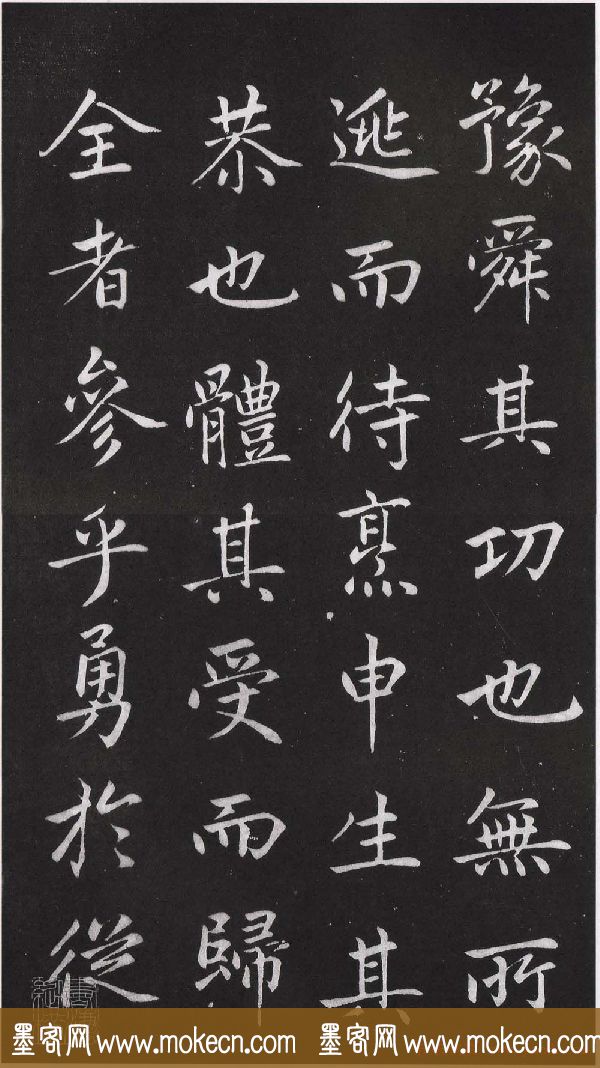 豫舜其功也無所
逃而待烹申生其
恭也體其受而歸
全者參乎勇於從
墨客网 www.mokecn.com 墨客网 www.mokecn.com